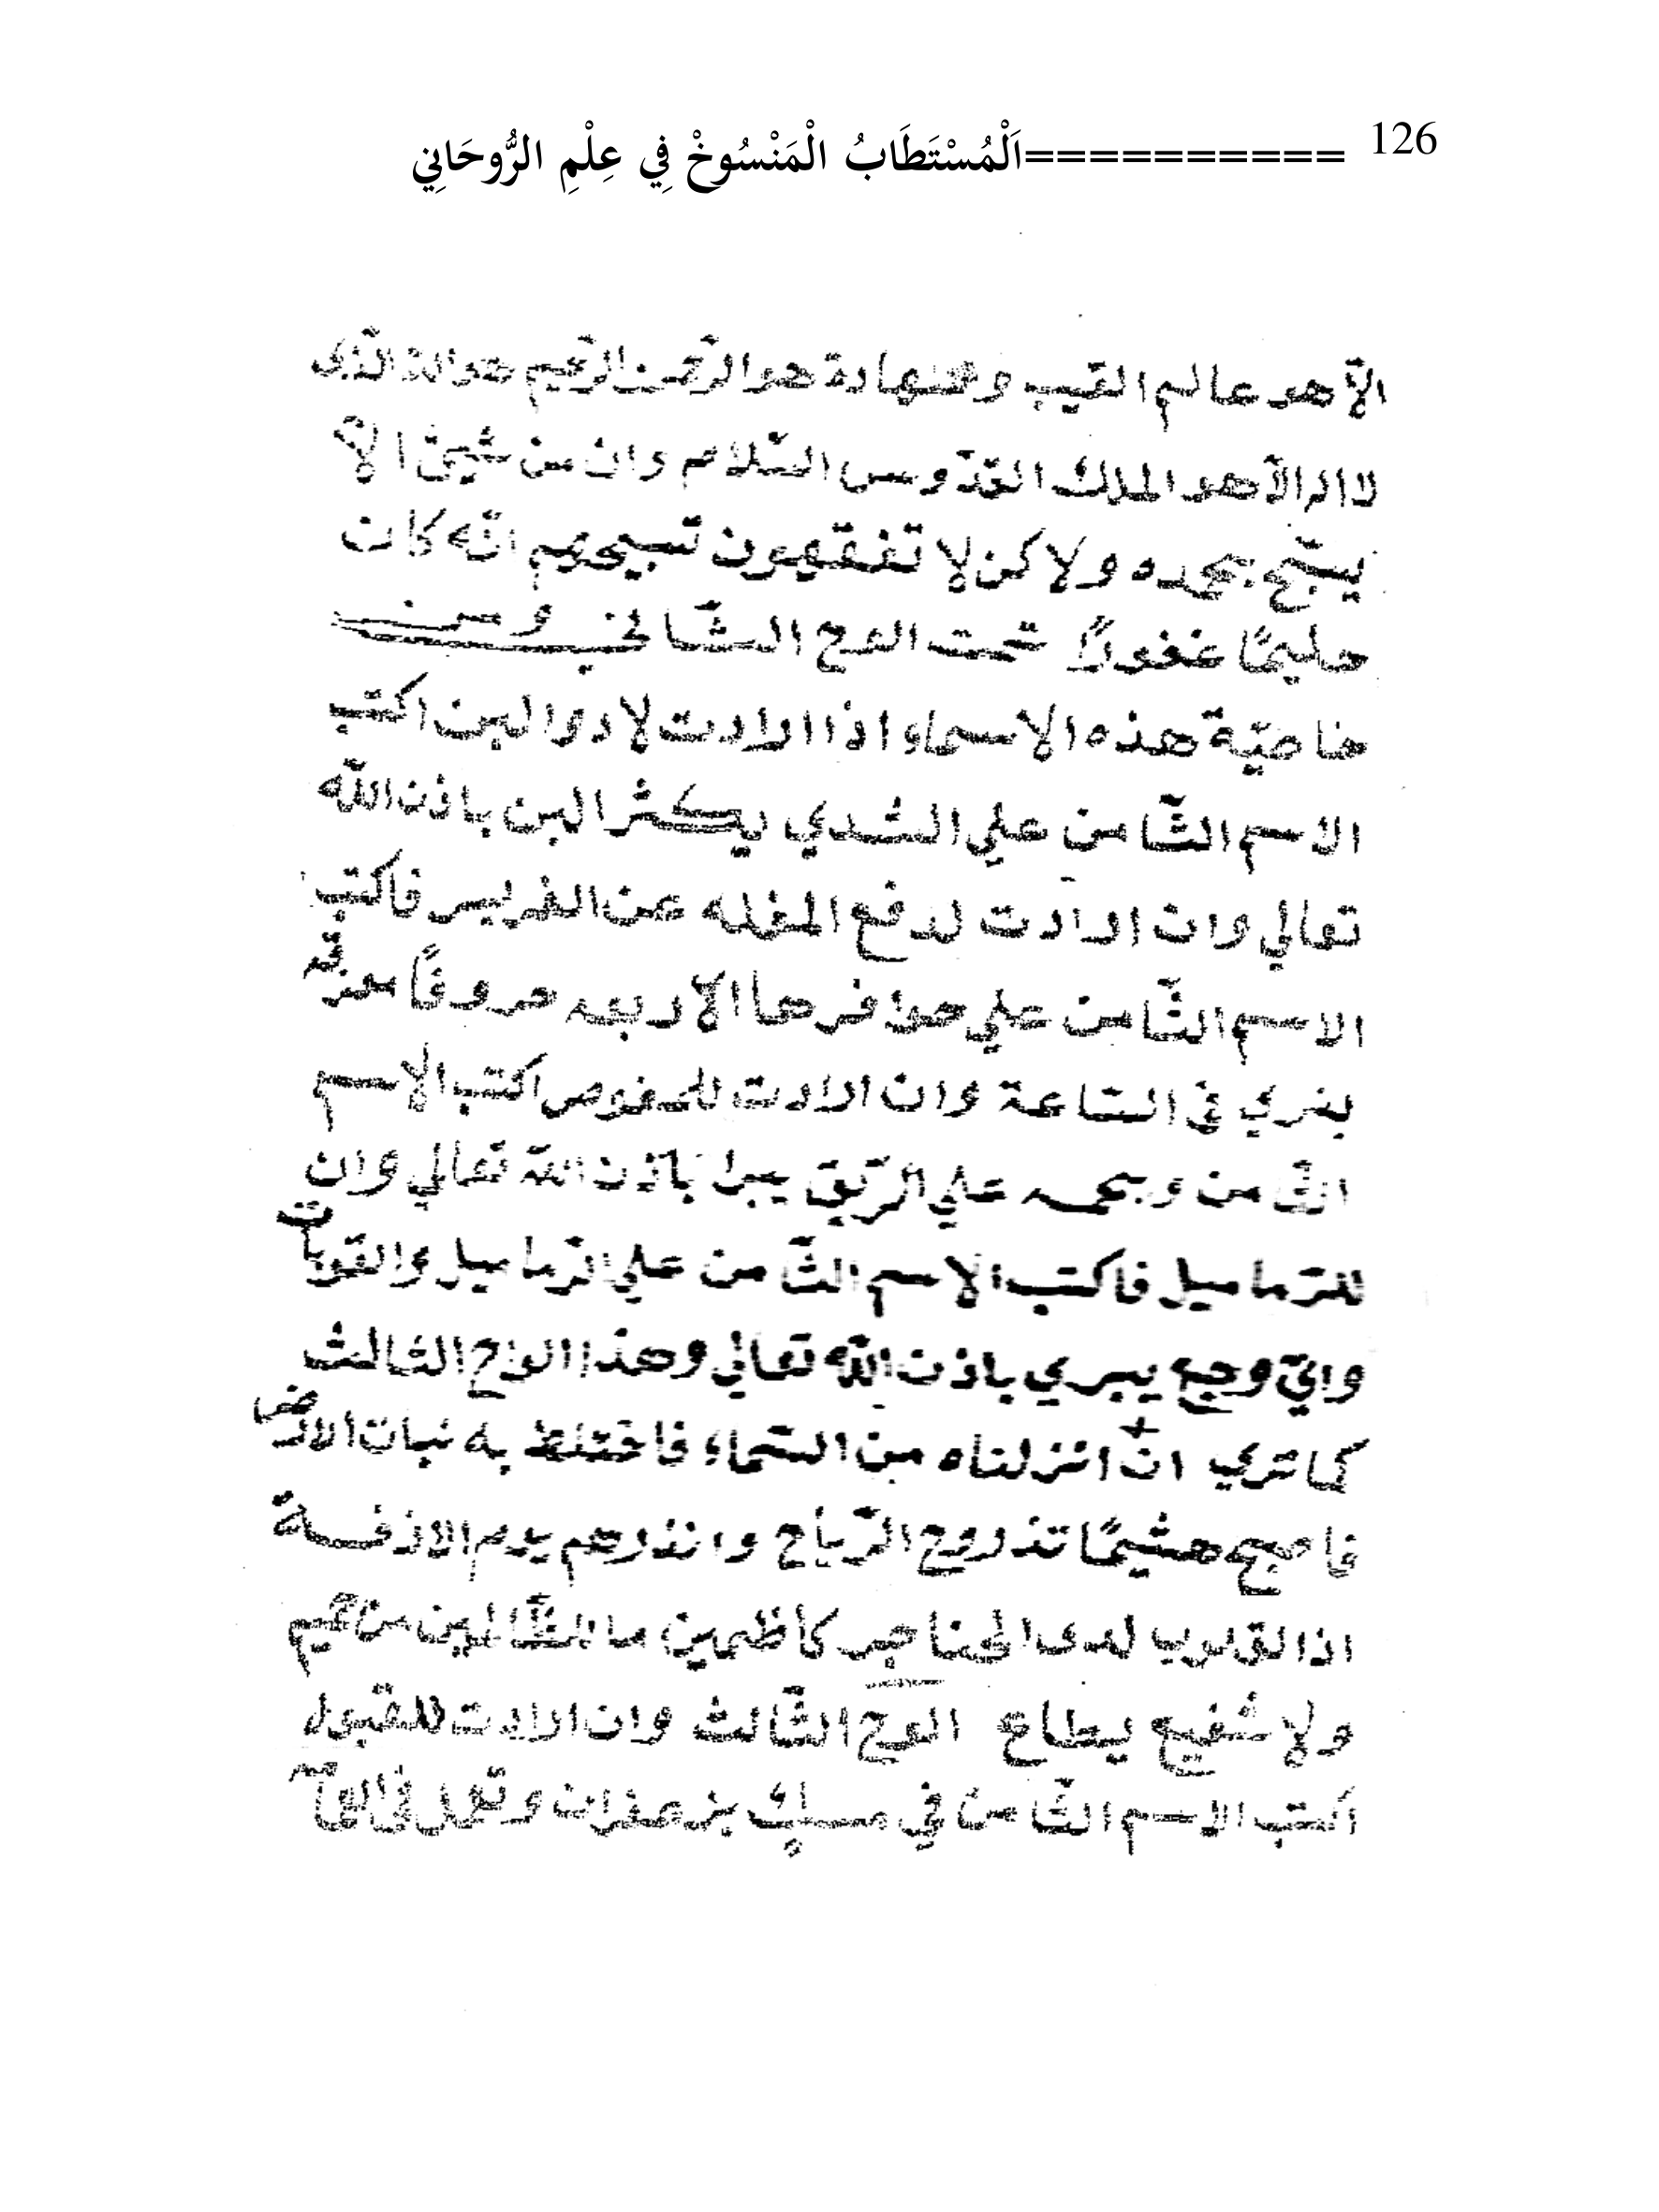 126 ==========اَلْمُسْتَطَابُ الْمَنْسُوخْ فِي عِلْمِ الرُّوحَانِي
الّا هو عالم الغيب والشهادة هو الرّحمن الرّحيم هو الله الّذى
لا اله الّا هو الملك القدّوس السّلام وان من شيئ الا
يسبّح بحمده ولا كن لا تفقهون تسبيحهم انّه كان
حليمًا غفورًا تمت الوح الثّاني ومن
خاصيّة هذه الاسماء اذا ارادت لادوا البن اكتب
الاسم الثّامن علي الثدي يكثر البن باذن الله
تعالي وان ارادت لدفع المغله عن الفريس فاكتب
الاسم الثّامن علي حوافرها الاربعه حروفًا مفرقه
يبري في السّاعة وان ارادت للمغوص اكتب الاسم
الثّامن ويمحه علي الرّيق يبرا باذن الله تعالي وان
للترماميل فاكتب الاسم الثّامن علي الرماميل والقوبات
وايّ وجع يبري باذن الله تعالي وهذا الواح الثالث
كما تري انّ انزلناه من السّماء فاختلط به نبات الارض
فاصبح هشيمًا تذروح الرّياح وانذرهم يوم الازفة
اذا القلوب لدى الحناجر كاظمين ما للظّالمين من حميم
ولا شفيع يطاع الوح الثّالث وان ارادت للقبول
اكتب الاسم الثّامن في مسكٍ بزعفران وتعمل في